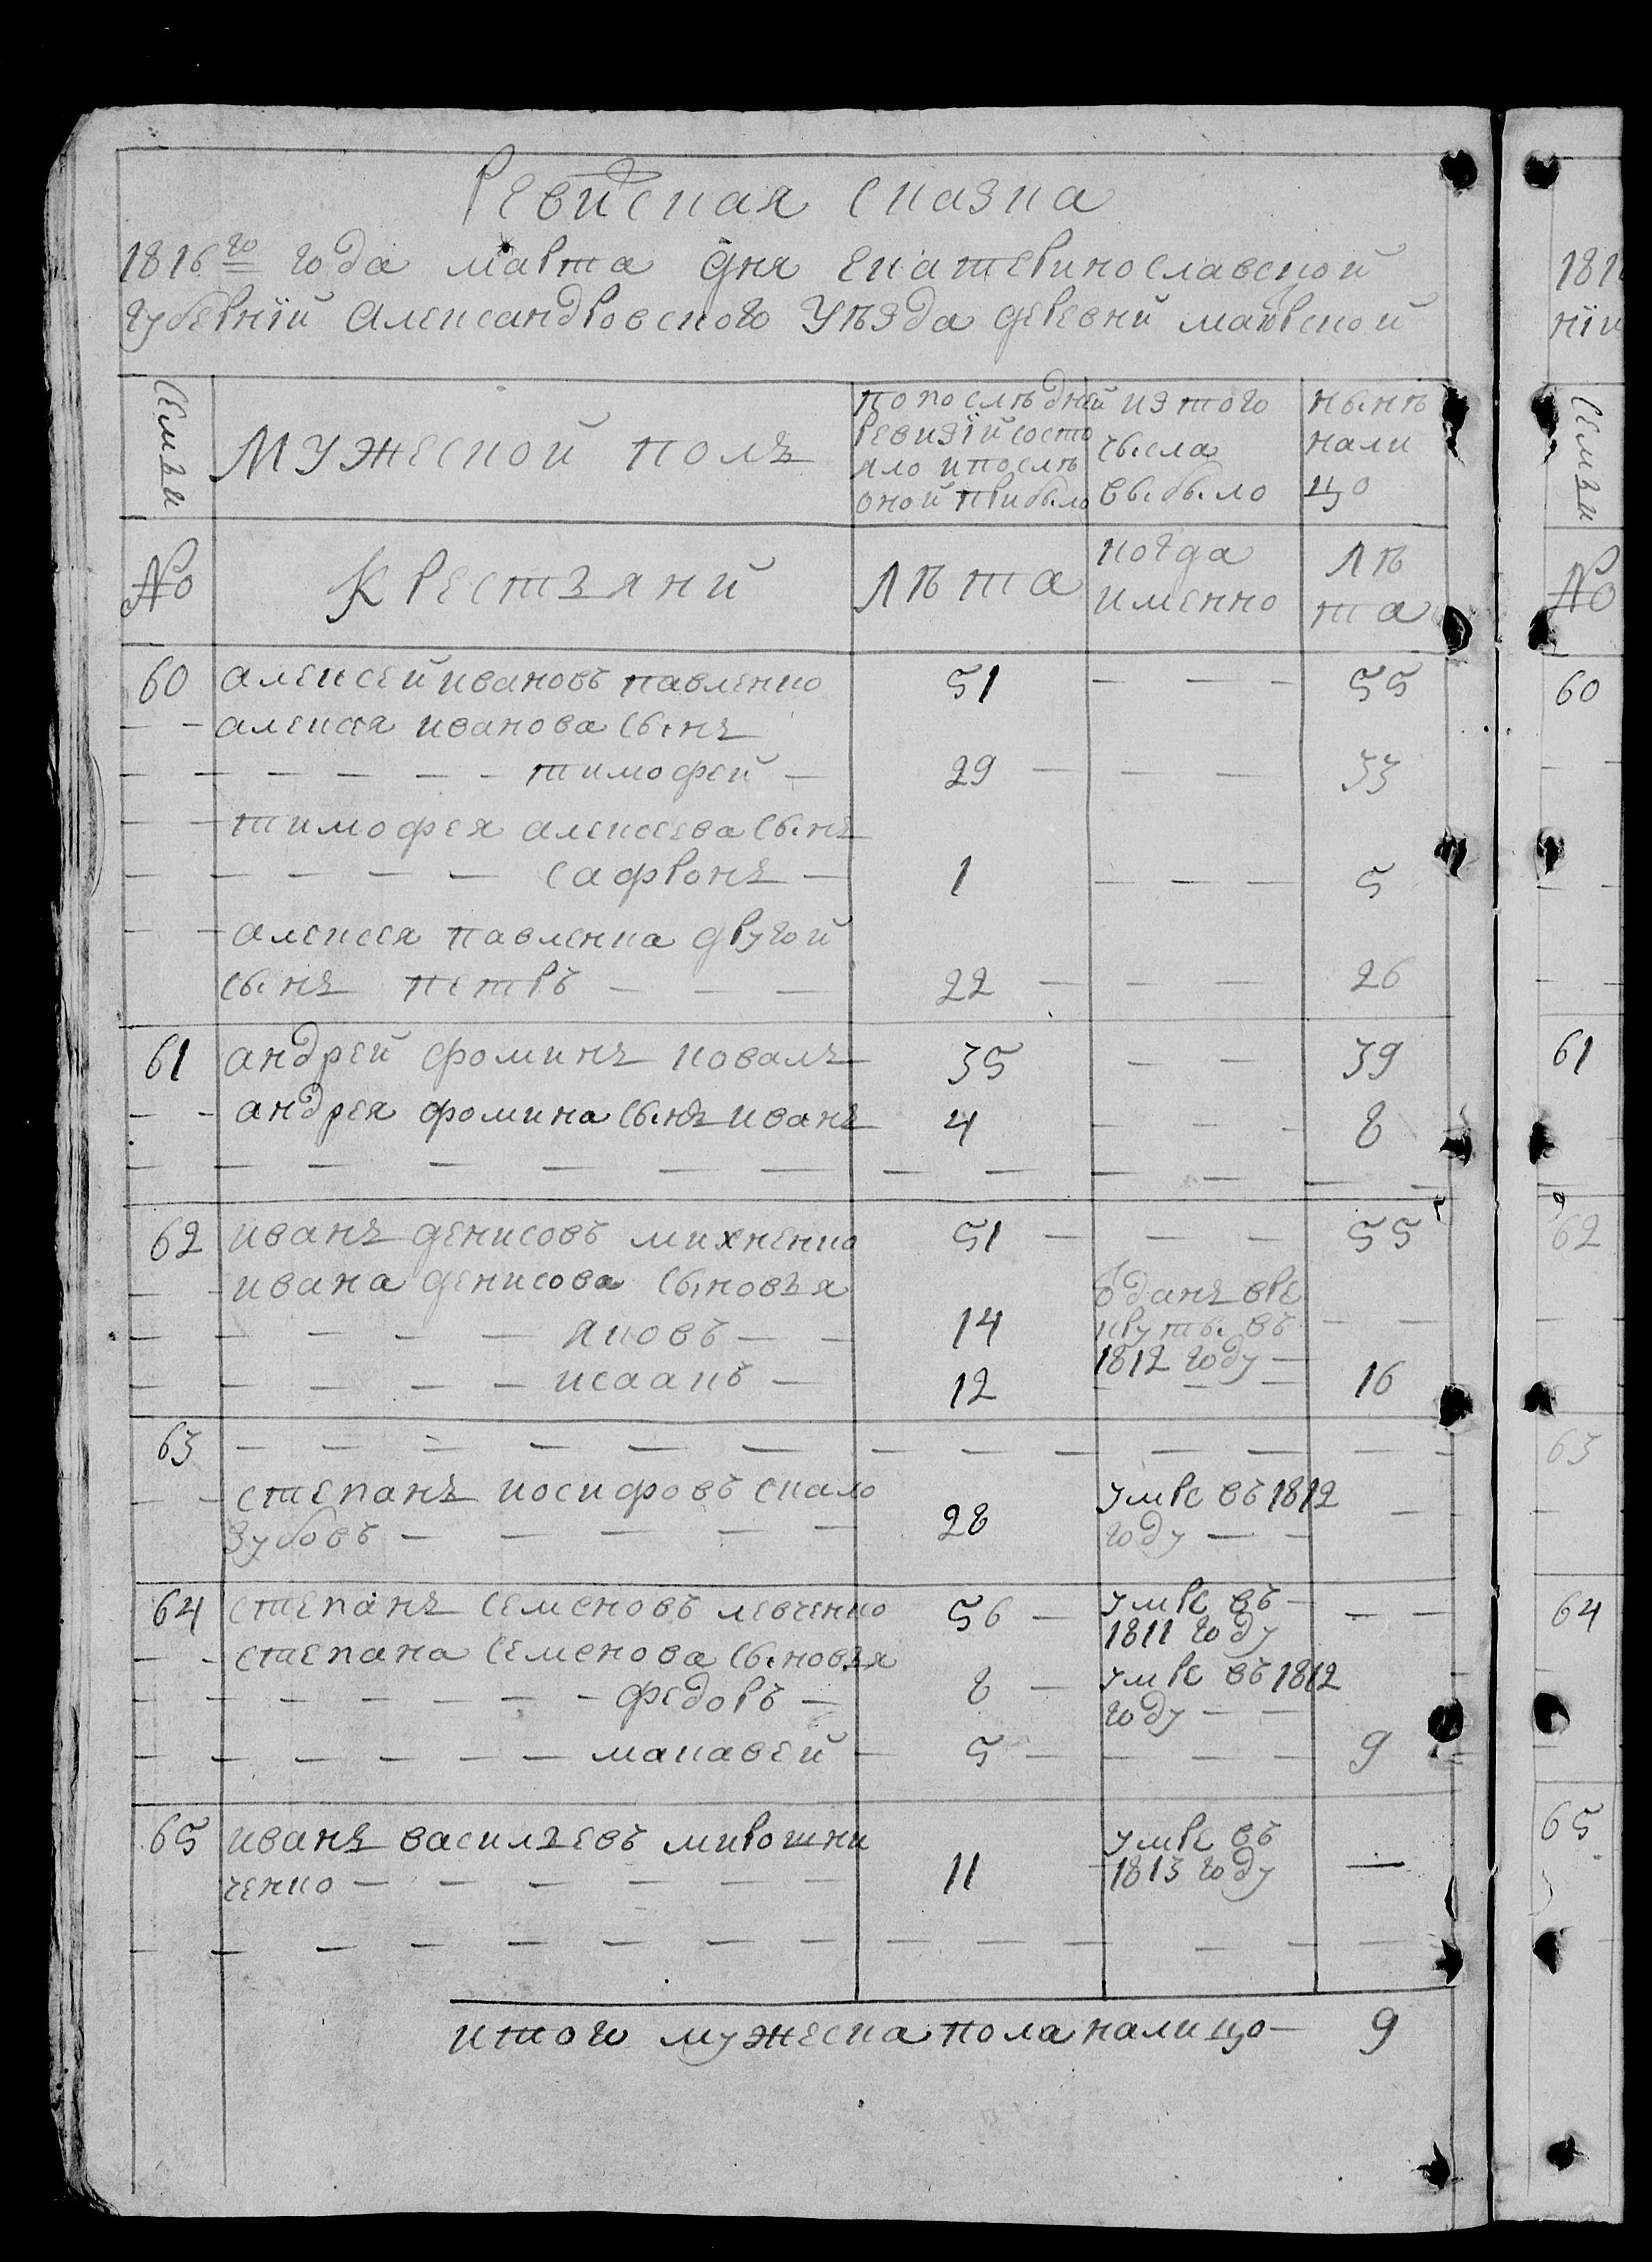 Ревиская сказка
1816го года марта дня екатеринославской
губернїй александровского уѣзда деревни маьвской
Семьи
мужескои полъ
по послѣдней
ревизїй состо
яло и послѣ
оной прибыло
из того
числа
выбыло
нынѣ
нали
цо
№
крестьяни
лѣта
когда
именно
лѣ
та
60 алексей ивановъ павленко 51 — — — 55
— — алексея иванова сынъ
— — — — — — тимофей — 29 — — — 33
— — тимофея алексеева сынъ
— — — — — сафронъ — 1 — — — 5
— — алексея павленка другой
сынъ петръ — — — 22 — — — 26
61 андрей фоминъ ковалъ 35 — — 39
— — андрея фомина сынъ иванъ 4 — — — 8
— — — — — — — — — — — — —
62 иванъ денисовъ михненко 51 — — — 55
— — ивана денисова сыновья
— — — — — яковъ — — 14 ѿданъ вре
круты въ
1812 году — — —
— — — — — исаакъ — 12 — — — 16
63 — — — — — — — — — — — — —
— — степанъ иосифовъ скало
зубовъ — — — — — 28 умре въ 1812
году — — —
64 степанъ семеновъ левченко 56 — умре въ —
1811 году — —
— — степана семенова сыновья
— — — — — — — федоръ — 8 — умре въ 1812
году — —
— — — — — — макавей — 5 — — — — 9
65 иванъ васильевъ мирошни
ченко — — — — — — 11 умре въ
1813 году —
— — — — — — — — — — — — —
итого мужеска пола налицо — 9
181
нїи
Семьи
№
60
61
62
63
64
65